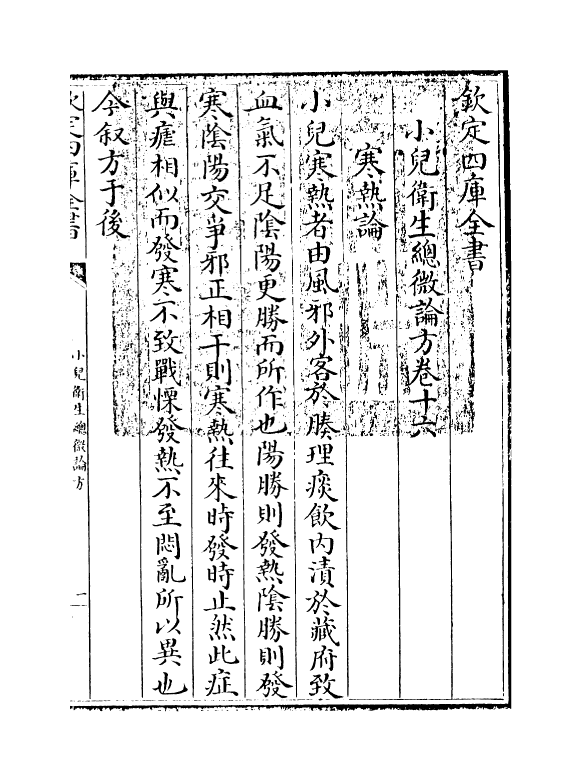 欽定四庫全書
小兒衛生總微論方卷十六
寒熱論
小兒寒熱者由風邪外客於腠理痰飲内漬於藏府致
血氣不足陰陽更勝而所作也陽勝則發熱陰勝則發
寒陰陽交爭邪正相干則寒熱往來時發時止然此症
與瘧相似而發寒不致戰慄發熱不至悶亂所以異也
今叙方于後
欽定四庫全書
小兒衛生總微論方
二